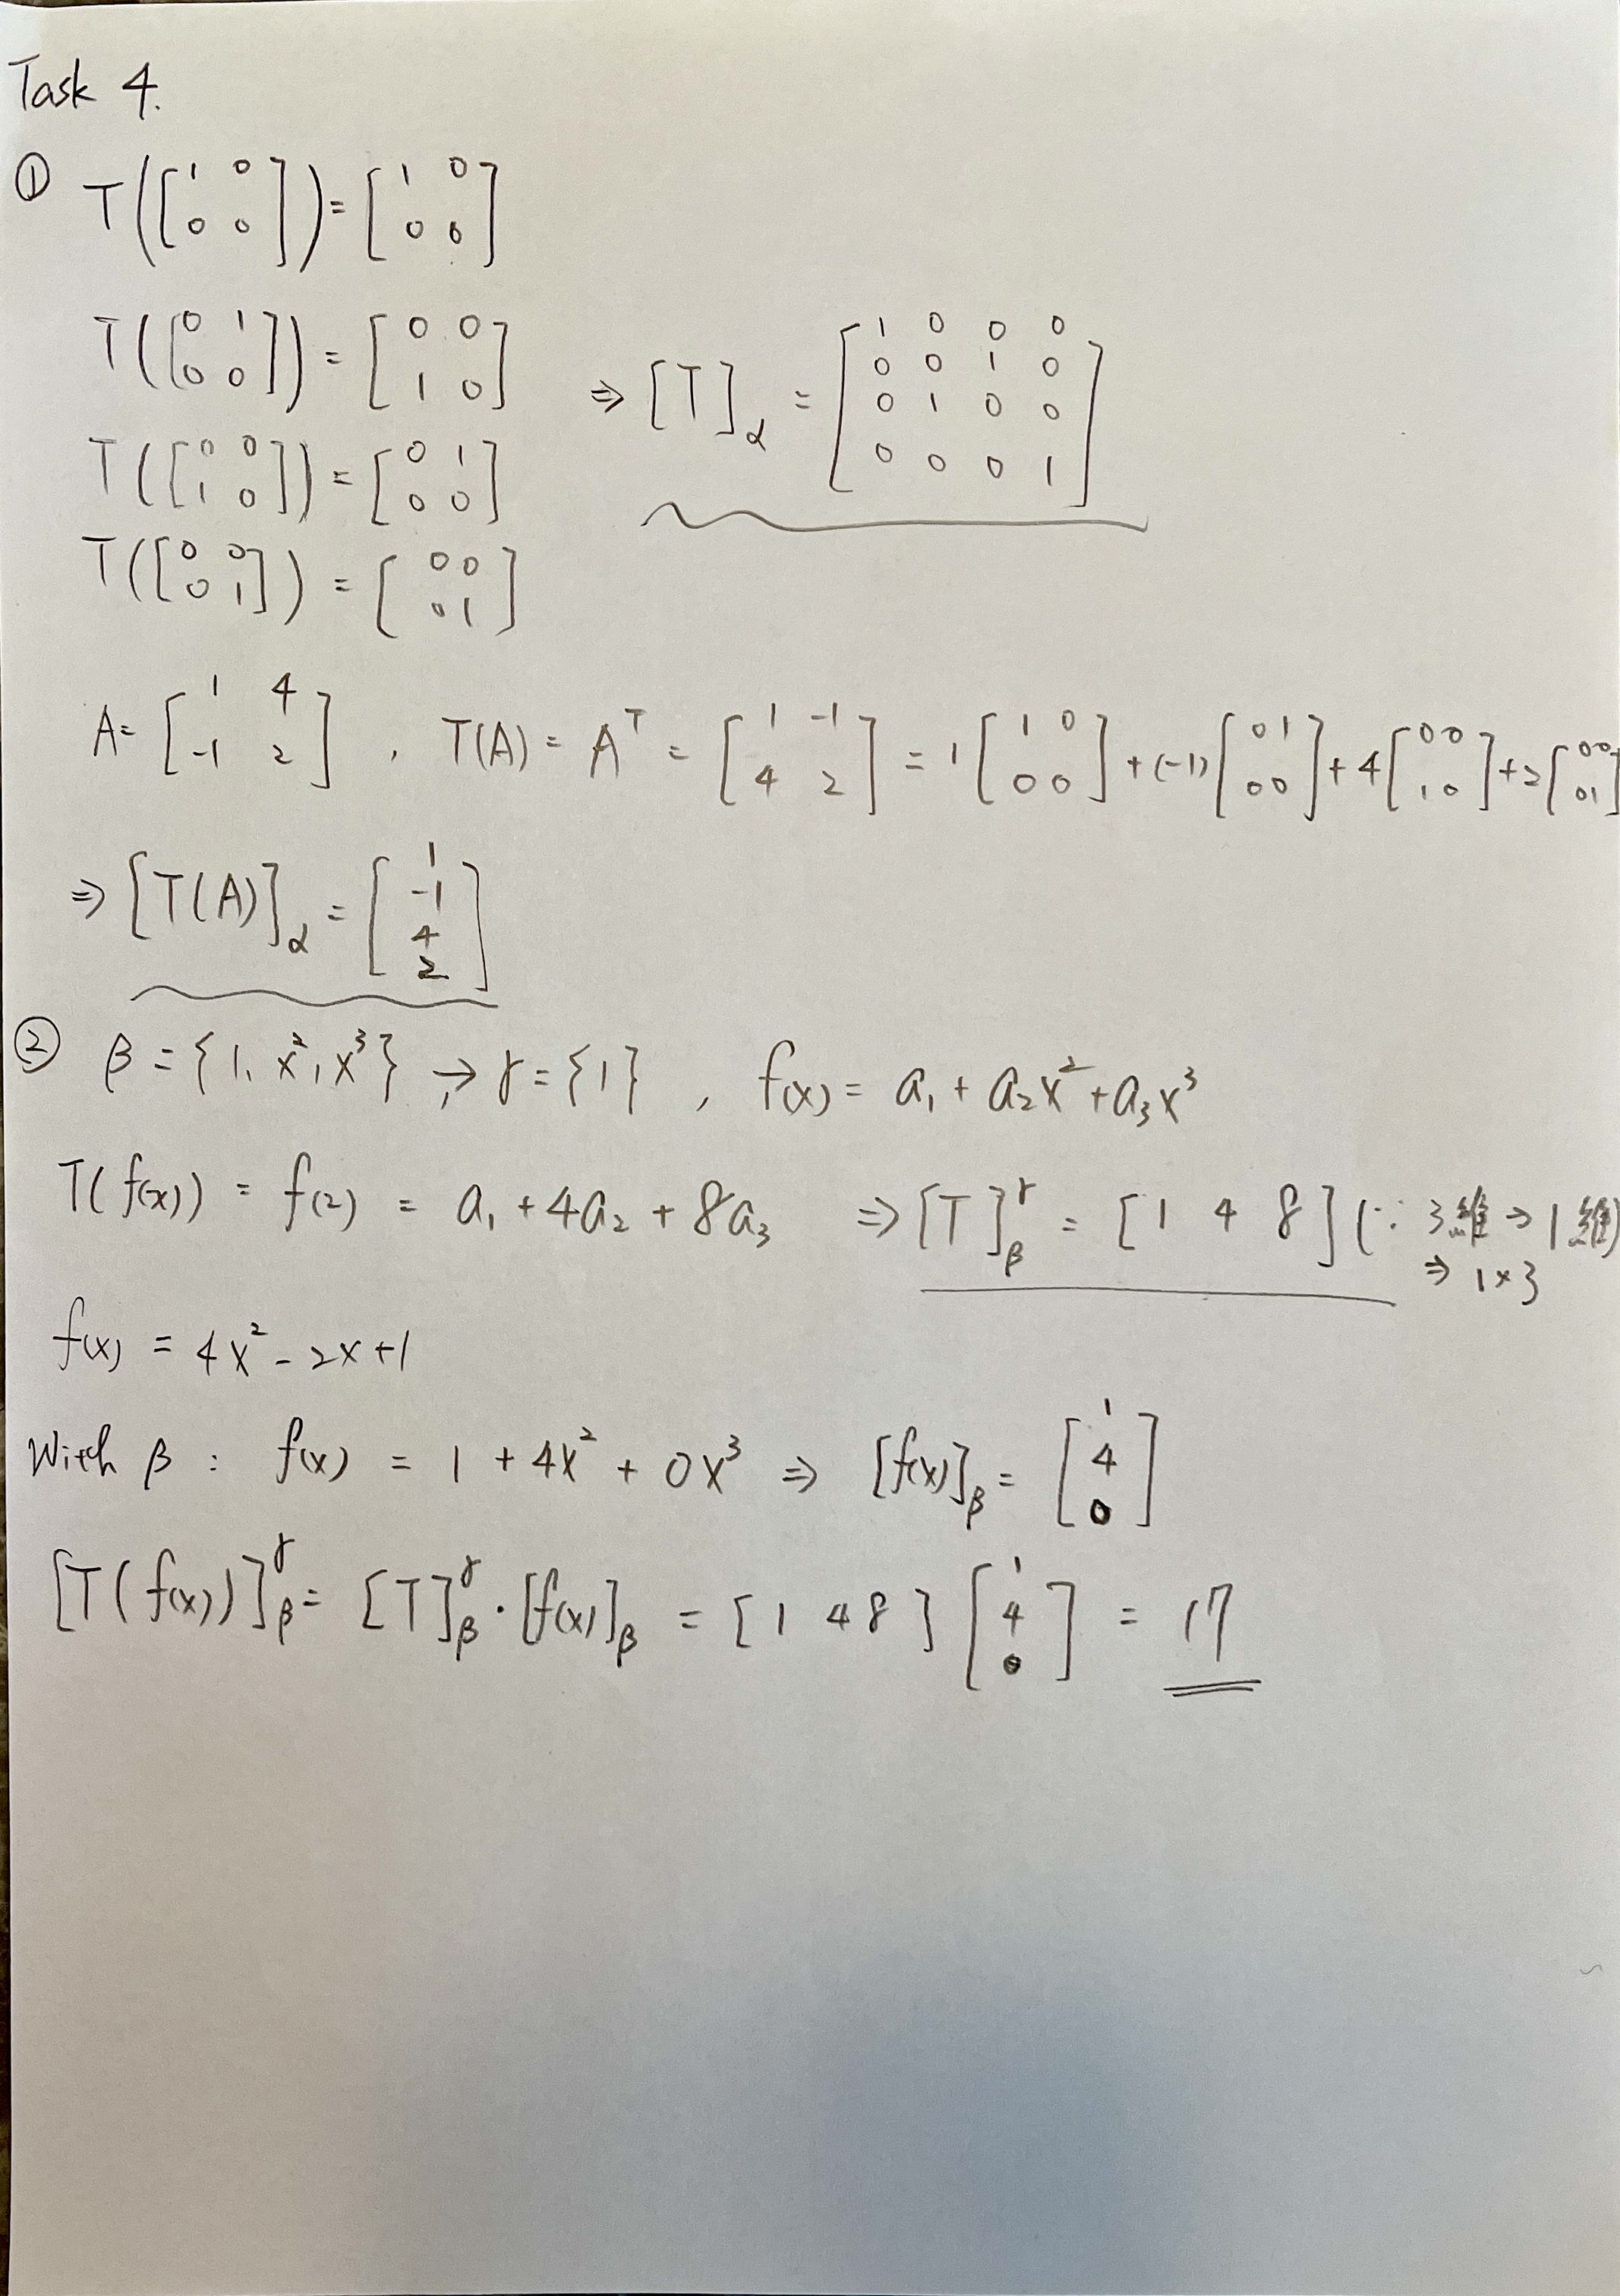 Task 4.
① T([1 0; 0 0]) = [1 0; 0 0]
T([0 1; 0 0]) = [0 0; 1 0] ⇒ [T]_α = [1 0 0 0; 0 0 1 0; 0 1 0 0; 0 0 0 1]
T([0 0; 1 0]) = [0 1; 0 0]
T([0 0; 0 1]) = [0 0; 0 1]
A = [1 4; -1 2] , T(A) = A^T = [1 -1; 4 2] = 1[1 0; 0 0] + (-1)[0 1; 0 0] + 4[0 0; 1 0] + 2[0 0; 0 1]
⇒ [T(A)]_α = [1; -1; 4; 2]
② β = {1, x², x³} → γ = {1} , f(x) = a₁ + a₂x² + a₃x³
T(f(x)) = f(2) = a₁ + 4a₂ + 8a₃ ⇒ [T]_β^γ = [1 4 8] (∵ 3維 → 1維)
⇒ 1×3
f(x) = 4x² - 2x + 1
With β : f(x) = 1 + 4x² + 0x³ ⇒ [f(x)]_β = [1; 4; 0]
[T(f(x))]_β^γ = [T]_β^γ · [f(x)]_β = [1 4 8][1; 4; 0] = 17